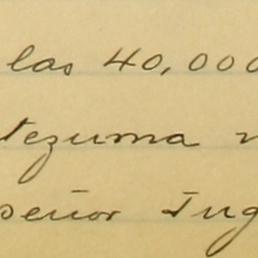 las 40,000
tezuma
señor Ing